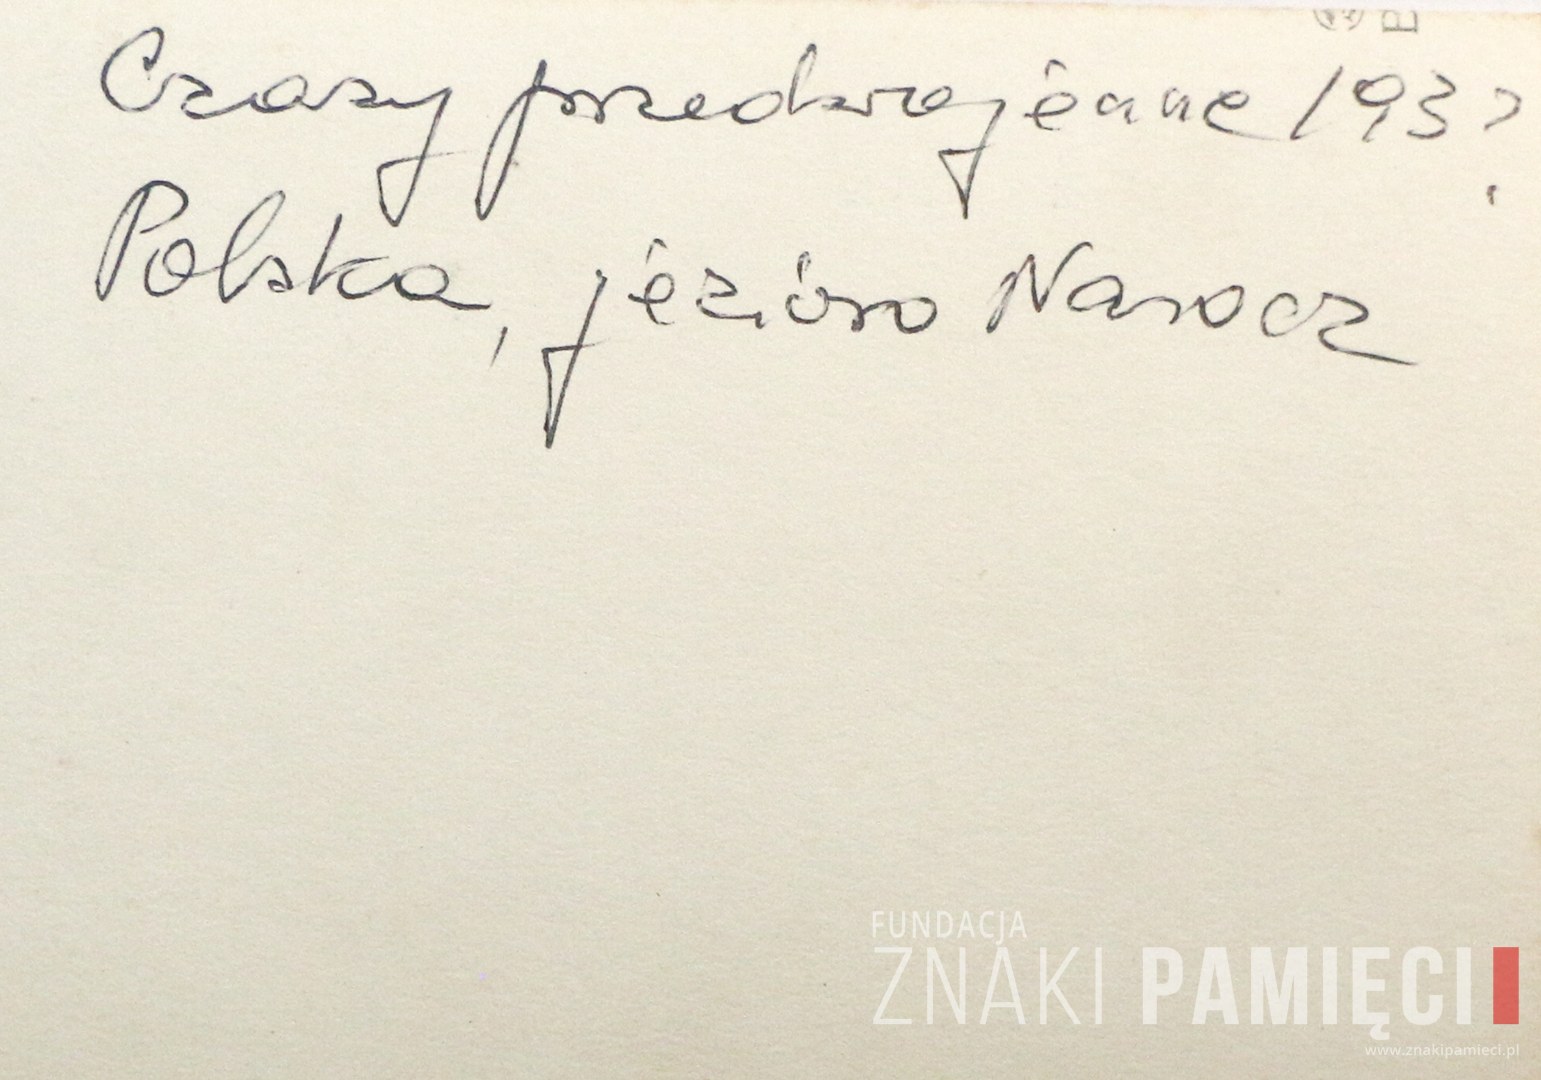 Czasy przedwojenne 193?
Polska, jezioro Narocz
FUNDACJA
ZNAKI PAMIĘCI
www.znakipamieci.pl